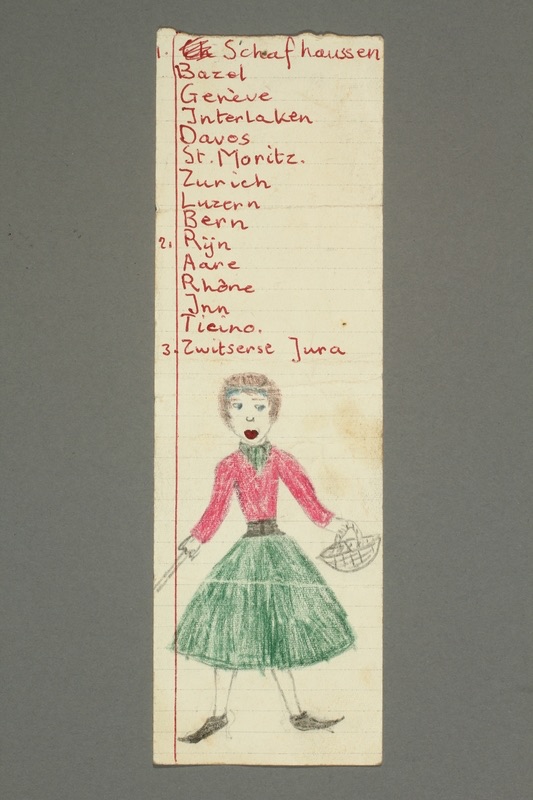 1. Schafhaussen
Bazel
Genève
Interlaken
Davos
St. Moritz.
Zurich
Luzern
Bern
2. Rijn
Aare
Rhône
Inn
Ticino.
3. Zwitserse Jura